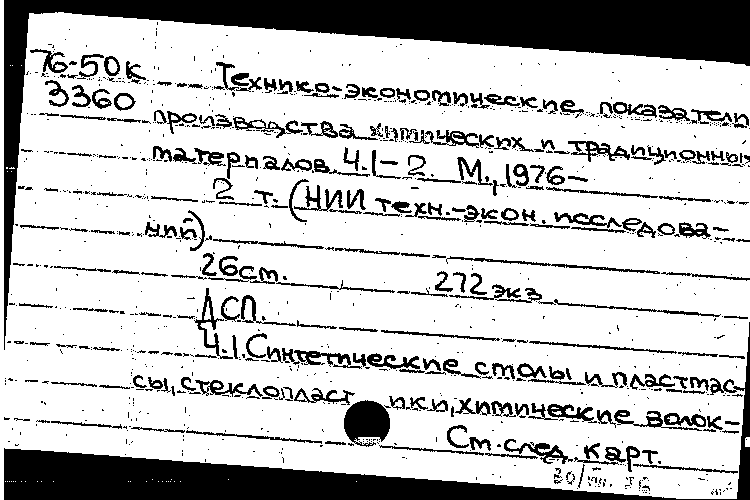 76-50к Технико-экономические показатели
3360 производства химических и традиционных
материалов. Ч.1-2. М., 1976-
2 т. (НИИ техн.-экон. исследова-
ний).
26см. 272 экз.
ДСП.
Ч.1. Синтетические смолы и пластмас-
сы, стеклопластики, химические волок-
См. след. карт.